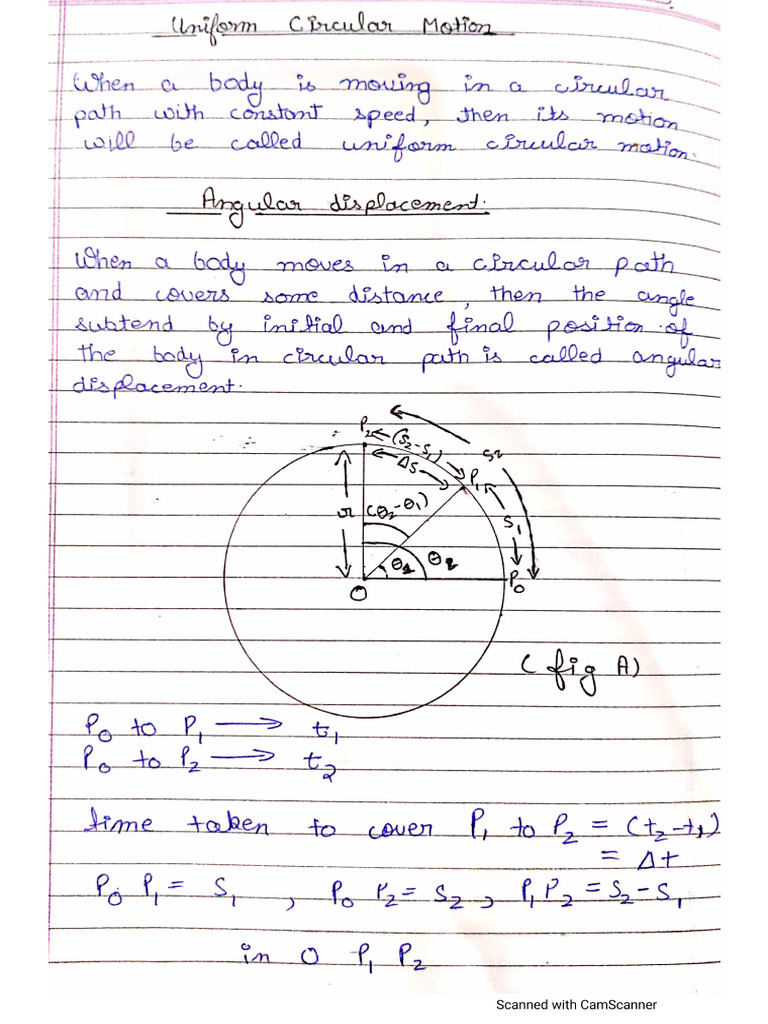 Uniform Circular Motion
When a body is moving in a circular
path with constant speed, then its motion
will be called uniform circular motion.
Angular displacement.
When a body moves in a circular path
and covers some distance, then the angle
subtend by initial and final position of
the body in circular path is called angular
displacement.
P₂ (S₂-S₁) S₂
ΔS P₁
r (θ₂-θ₁) S₁
θ₁ θ₂ P₀
O
(fig A)
P₀ to P₁ ⟶ t₁
P₀ to P₂ ⟶ t₂
time taken to cover P₁ to P₂ = (t₂-t₁)
= Δt
P₀ P₁ = S₁ , P₀ P₂ = S₂, P₁P₂ = S₂-S₁
in O P₁ P₂
Scanned with CamScanner